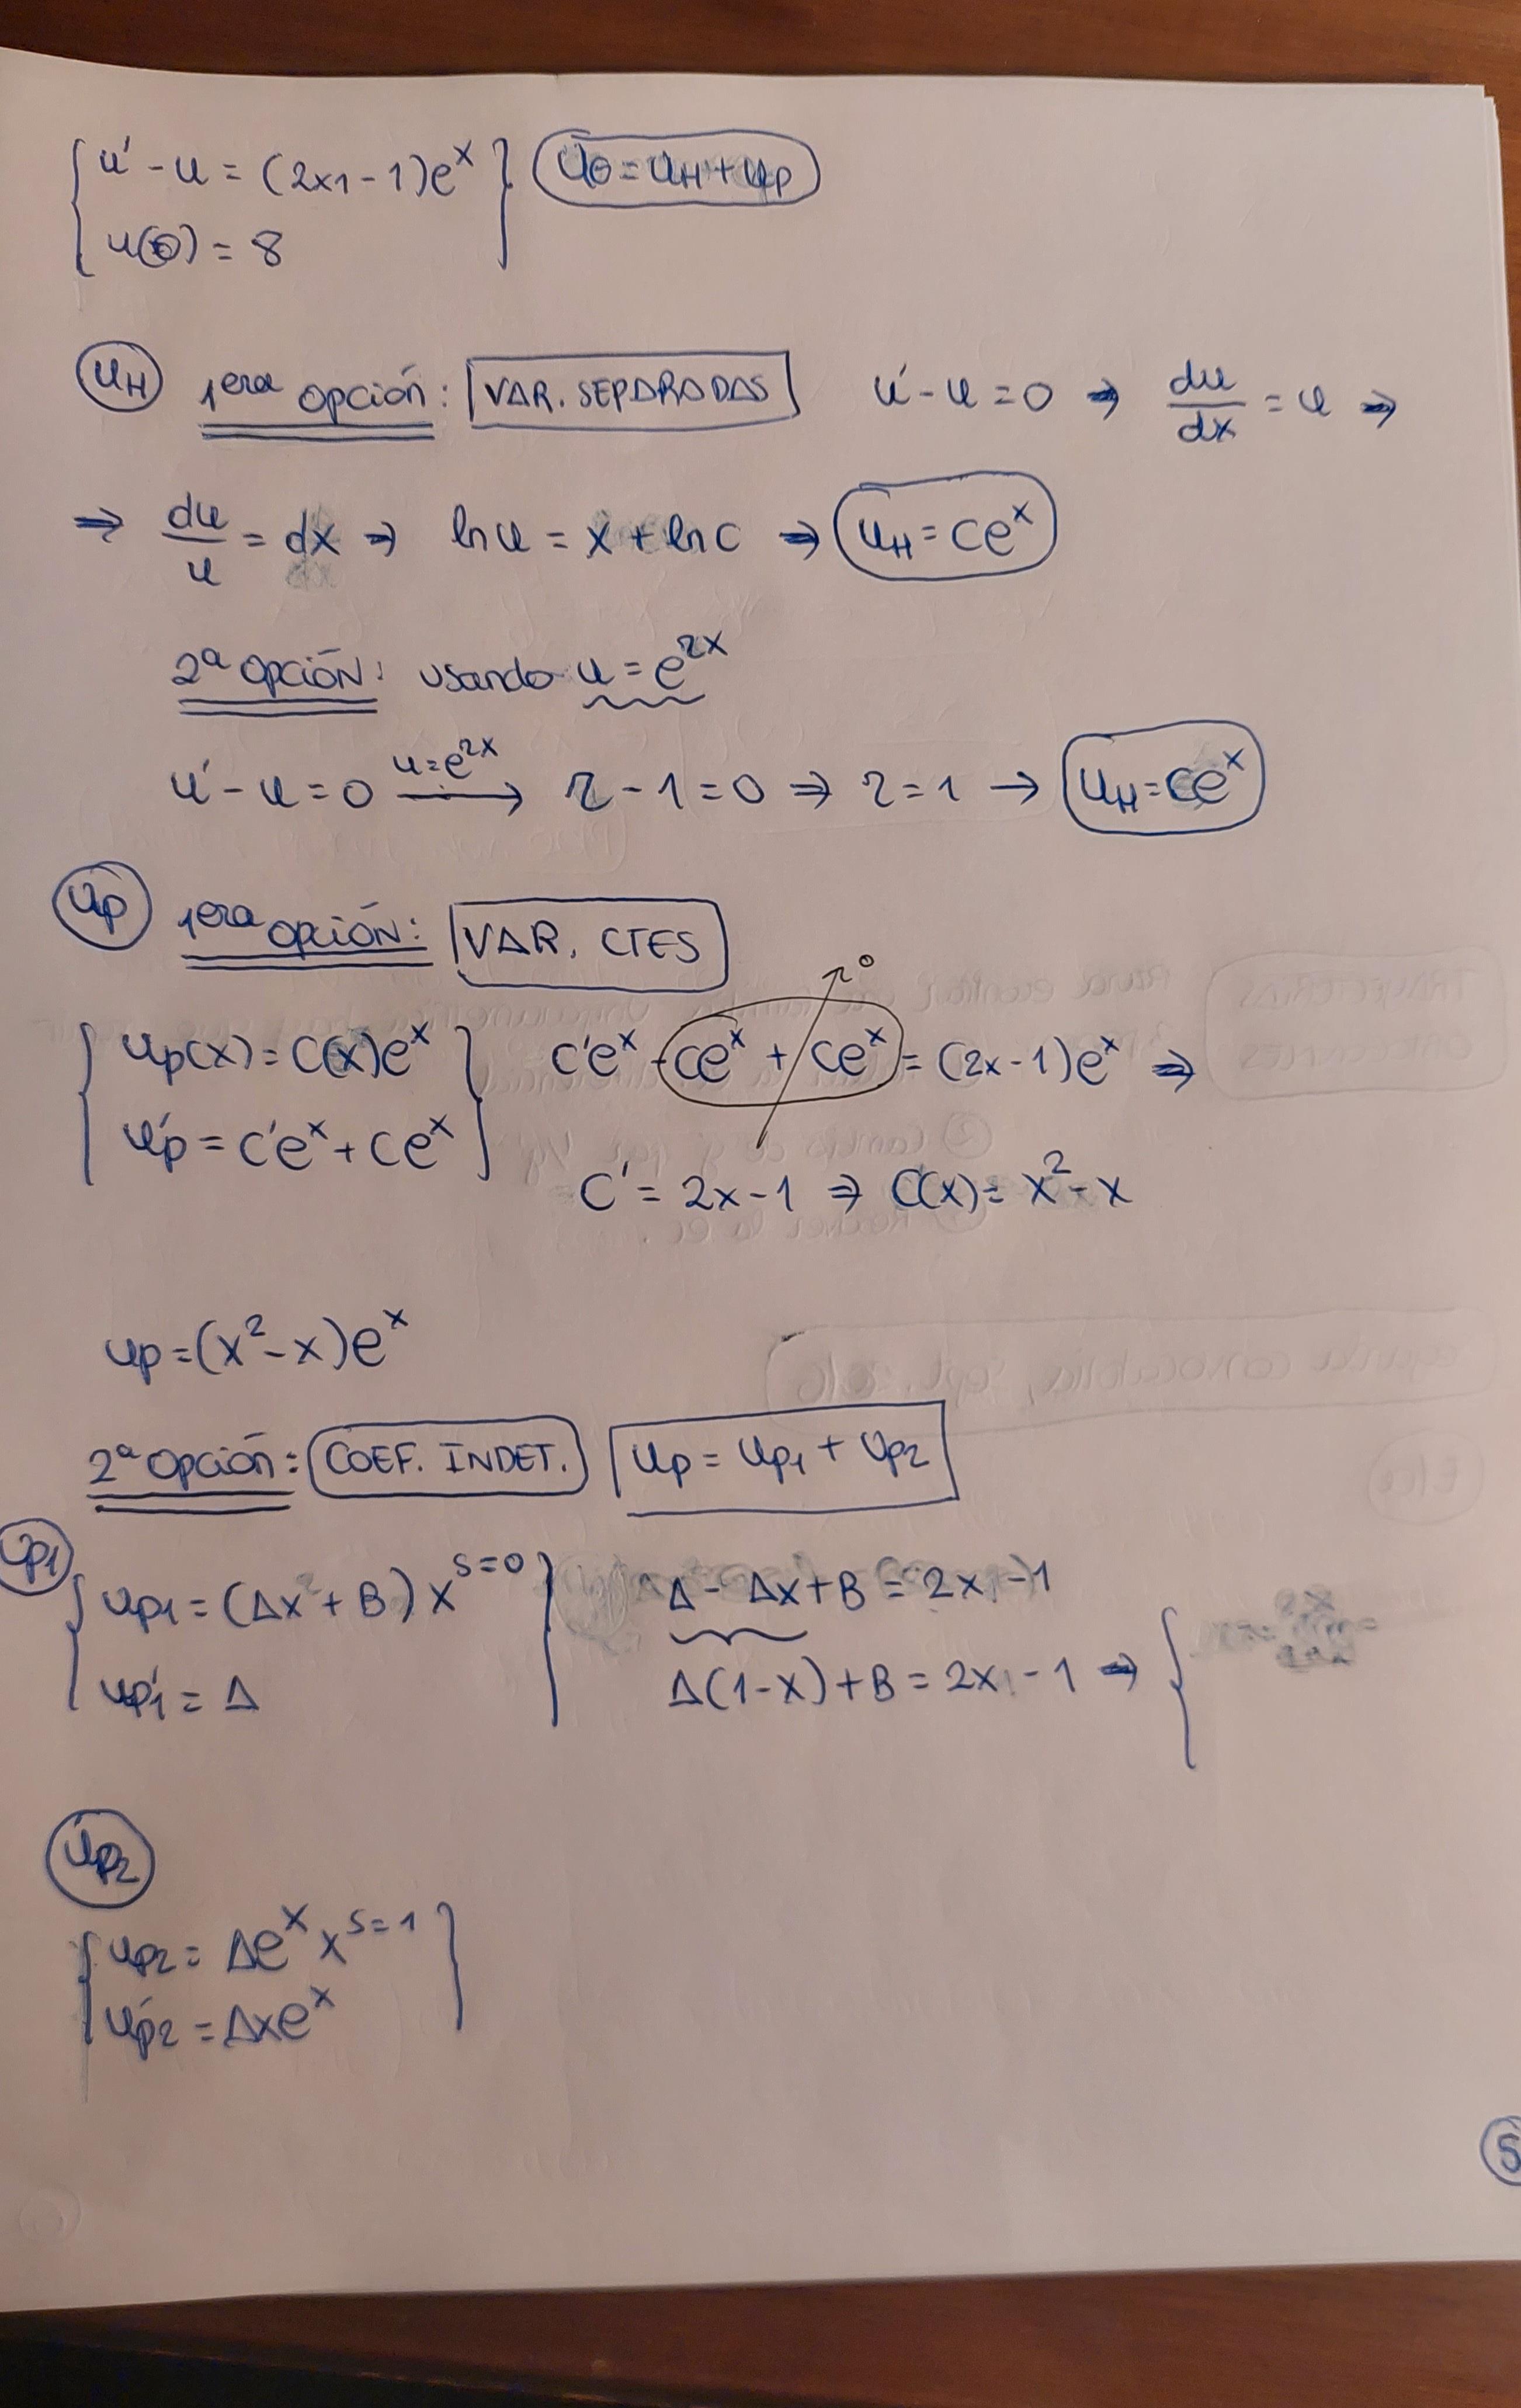 { u' - u = (2x1 - 1)e^x } uG = uH + up
u(0) = 8
uH 1era opción: VAR. SEPARADAS u' - u = 0 ⇒ du/dx = u ⇒
⇒ du/u = dx ⇒ ln u = x + ln C ⇒ uH = Ce^x
2ª opción: usando u = e^rx
u' - u = 0 →(u = e^rx) r - 1 = 0 ⇒ r = 1 → uH = Ce^x
up 1era opción: VAR. CTES
{ up(x) = C(x)e^x } C'e^x - Ce^x + Ce^x = (2x-1)e^x ⇒ 0
up' = C'e^x + Ce^x
C' = 2x-1 ⇒ C(x) = x^2 - x
up = (x^2 - x)e^x
2ª opción: COEF. INDET. up = up1 + up2
up1
{ up1 = (Ax + B)x^s=0 } A - Ax + B = 2x - 1
up1' = A A(1-x) + B = 2x - 1 ⇒ {
up2
{ up2 = Ae^x x^s=1 }
up2' = Axe^x
5